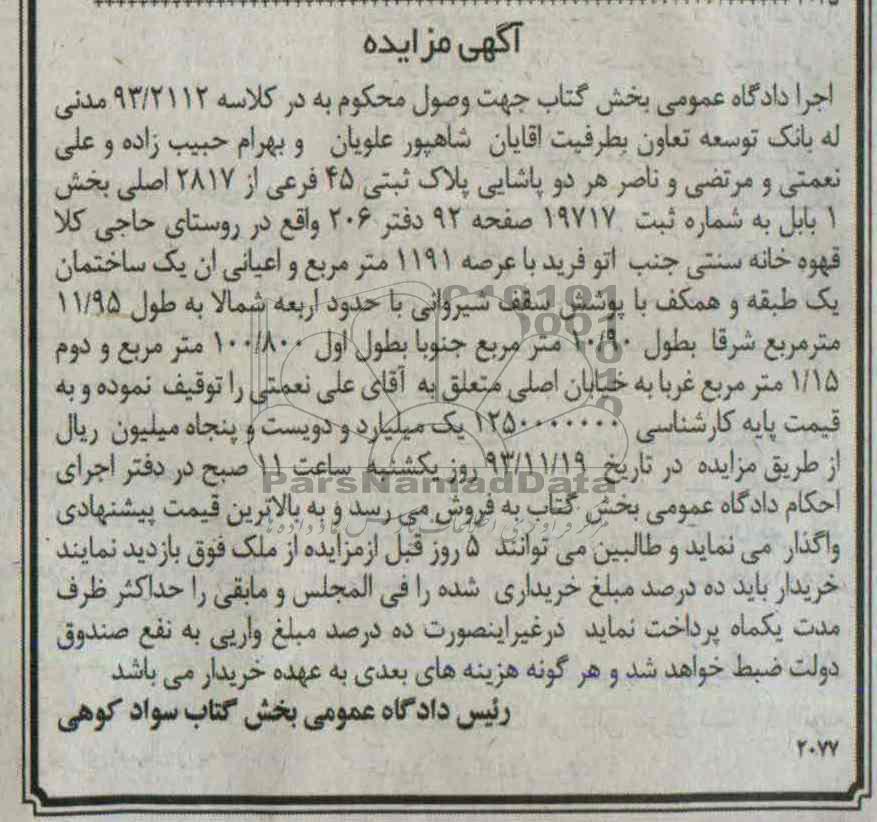 آگهی مزایده
اجرا دادگاه عمومی بخش گتاب جهت وصول محکوم به در کلاسه ۹۳/۲۱۱۲ مدنی
له بانک توسعه تعاون بطرفیت اقایان شاهپور علویان و بهرام حبیب زاده و علی
نعمتی و مرتضی و ناصر هر دو پاشایی پلاک ثبتی ۴۵ فرعی از ۲۸۱۷ اصلی بخش
۱ بابل به شماره ثبت ۱۹۷۱۷ صفحه ۹۲ دفتر ۲۰۶ واقع در روستای حاجی کلا
قهوه خانه سنتی جنب اتو فرید با عرصه ۱۱۹۱ متر مربع و اعیانی ان یک ساختمان
یک طبقه و همکف با پوشش سقف شیروانی با حدود اربعه شمالا به طول ۱۱/۹۵
مترمربع شرقا بطول ۱۰/۹۰ متر مربع جنوبا بطول اول ۱۰۰/۸۰۰ متر مربع و دوم
۱/۱۵ متر مربع غربا به خیابان اصلی متعلق به آقای علی نعمتی را توقیف نموده و به
قیمت پایه کارشناسی ۱۲۵۰۰۰۰۰۰۰ یک میلیارد و دویست و پنجاه میلیون ریال
از طریق مزایده در تاریخ ۹۳/۱۱/۱۹ روز یکشنبه ساعت ۱۱ صبح در دفتر اجرای
ParsNamadData
احکام دادگاه عمومی بخش گتاب به فروش می رسد و به بالاترین قیمت پیشنهادی
واگذار می نماید و طالبین می توانند ۵ روز قبل ازمزایده از ملک فوق بازدید نمایند
خریدار باید ده درصد مبلغ خریداری شده را فی المجلس و مابقی را حداکثر ظرف
مدت یکماه پرداخت نماید درغیراینصورت ده درصد مبلغ واریی به نفع صندوق
دولت ضبط خواهد شد و هر گونه هزینه های بعدی به عهده خریدار می باشد
رئیس دادگاه عمومی بخش گتاب سواد کوهی
۲۰۷۷